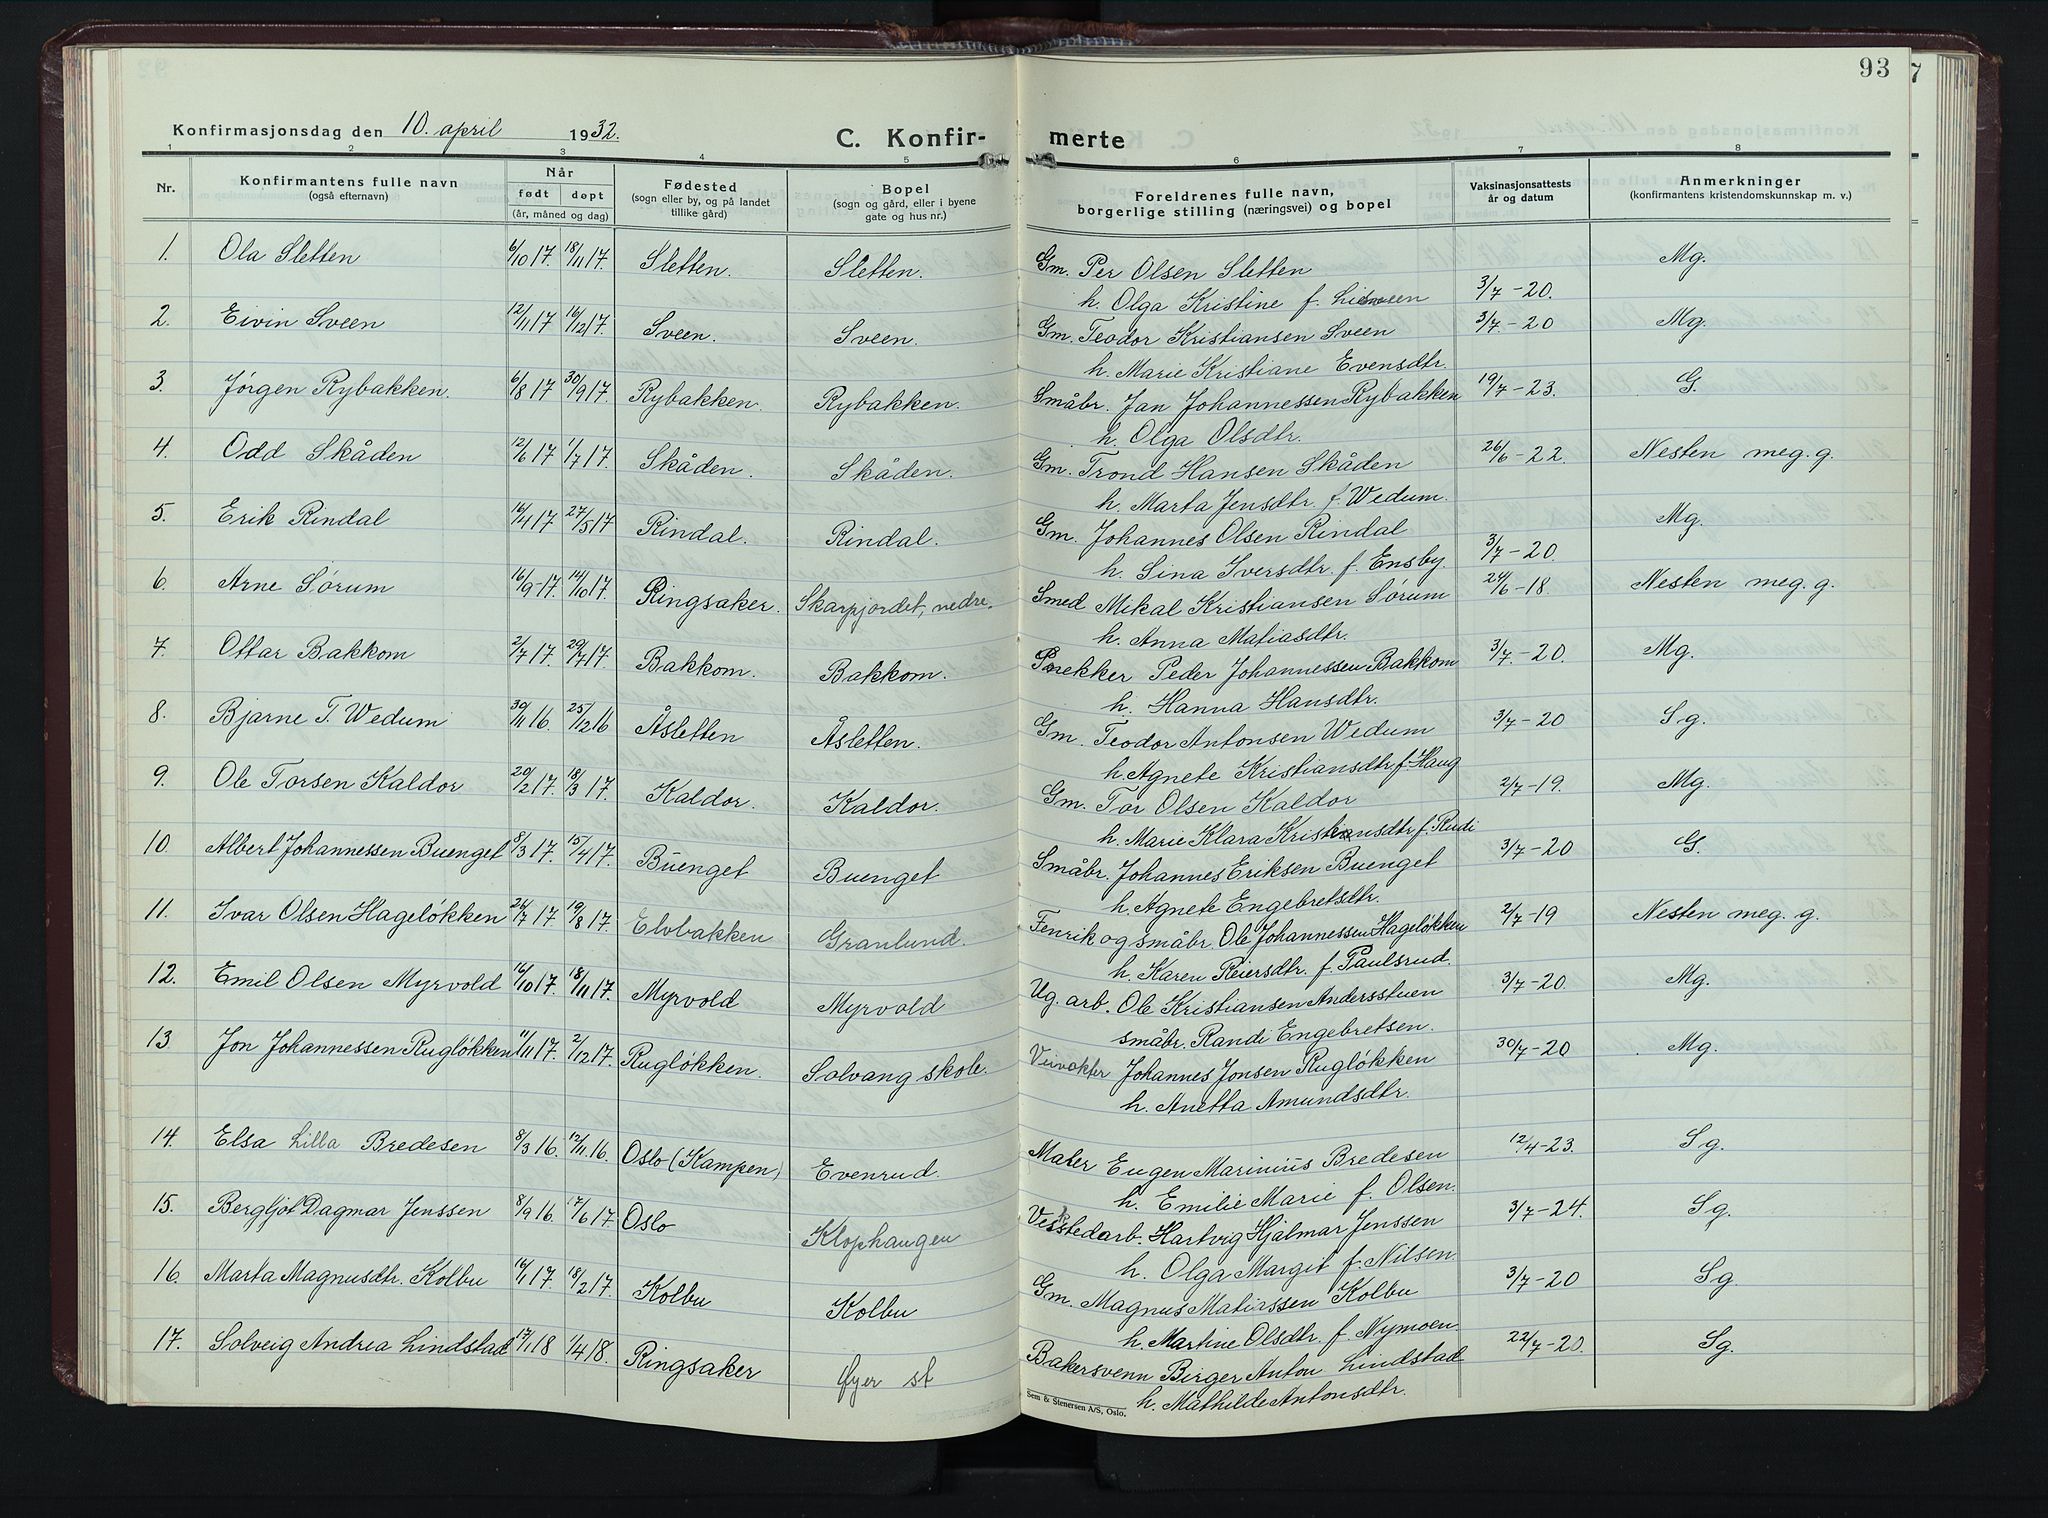 93
7
Konfirmasjonsdag den 10. april 1932.
C. Konfir- merte
1 2 3 4 5 6 7 8
Nr. Konfirmantens fulle navn (også efternavn) Når født døpt (år, måned og dag) Fødested (sogn eller by, og på landet tillike gård) Bopel (sogn og gård, eller i byene gate og hus nr.) Foreldrenes fulle navn, borgerlige stilling (næringsvei) og bopel Vaksinasjonsattests år og datum Anmerkninger (konfirmantens kristendomskunnskap m. v.)
1. Ola Sletten 6/10 17. 18/11 17. Sletten. Sletten. Gm. Per Olsen Sletten Mg.
h. Olga Kristine f. 3/7-20.
2. Eivin Sveen 12/11 17 16/12 17. Sveen. Sveen. Gm. Teodor Kristiansen Sveen 3/7-20 Mg.
h. Marie Kristiane Evensdtr.
3. Jörgen Rybakken. 6/8 17 30/9 17. Rybakken. Rybakken. Småbr. Jan Johannessen Rybakken 19/7-23. G.
h. Olga Olsdtr.
4. Odd Skåden 12/6 17 1/7 17. Skåden. Skåden. Gm. Trond Hansen Skåden 26/6-22. Nesten meg. g.
h. Marta Jensdtr. f. Wedum.
5. Erik Rindal 27/5 17 Rindal. Rindal. Gm. Johannes Olsen Rindal Mg.
h. Sina Iversdtr. f. Ensby. 3/7-20.
6. Arne Sørum 16/9-17. 14/10 17. Ringsaker. Skarpjordet, nedre. Smed Mikal Kristiansen Sørum 24/6-18. Nesten meg. g.
h. Anna Matiasdtr.
7. Ottar Bakkom 2/7 17. 29/7 17. Bakkom. Bakkom. Snekker Peder Johannessen Bakkom 3/7-20. Mg.
h. Hanna Hansdtr.
8. Bjarne T. Wedum 30/11 16. 25/12 16 Åsletten Åsletten. Gm. Teodor Antonsen Wedum 3/7-20 Sg.
h. Agnete Kristiansdtr f. Haug
9. Ole Torsen Kaldor 20/2 17. 18/3 17. Kaldor. Kaldor. Gm. Tor Olsen Kaldor 2/7-19. Mg.
h. Marie Klara Kristiansdtr f. Rudi
10. Albert Johannessen Buenget 8/3 17. 15/4 17. Buenget Buenget Småbr. Johannes Eriksen Buenget 3/7-20 G.
h. Agnete Engebretsdtr.
11. Ivar Olsen Hageløkken 26/7 17. 19/8 17. Elvbakken Granlund. Fenrik og småbr. Ole Johannessen Hageløkken 2/7-19 Nesten meg. g.
h. Karen Reiersdtr. f. Paulsrud.
12. Emil Olsen Myrvold 16/10 17. 18/11 17. Myrvold Myrvold Ug. arb. Ole Kristiansen Andersstuen 3/7-20. Mg.
småbr. Randi Engebretsen.
13 Jon Johannessen Rugløkken 11/11 17. 2/12 17. Rugløkken. Solvang skole. Veivokter Johannes Jonsen Rugløkken 30/7-20 Mg.
h. Anetta Amundsdtr.
14. Elsa Lilla Bredesen 8/3 16. 12/11 16. Oslo (Kampen) Evenrud. Maler Eugen Marinius Bredesen 12/4-23. Sg.
h. Emilie Marie f. Olsen.
15. Bergljot Dagmar Jenssen 8/9 16. 17/6 17 Oslo Klophaugen Verkstedarb. Hartvig Hjalmar Jenssen 3/7-24. Sg.
h. Olga Margit f. Nilsen.
16. Marta Magnusdtr. Kolbu 16/1 17. 18/2 17. Kolbu Kolbu Gm. Magnus Matiassen Kolbu 3/7-20 Sg.
h. Martine Olsdtr. f. Nymoen
17. Solveig Andrea Lindstad 17/1 18 1/4 18. Ringsaker Øyer st Bakersvenn Birger Anton Lindstad 22/7-20. Sg.
h. Mathilde Antonsdtr.
Sem & Stenersen A/S, Oslo.